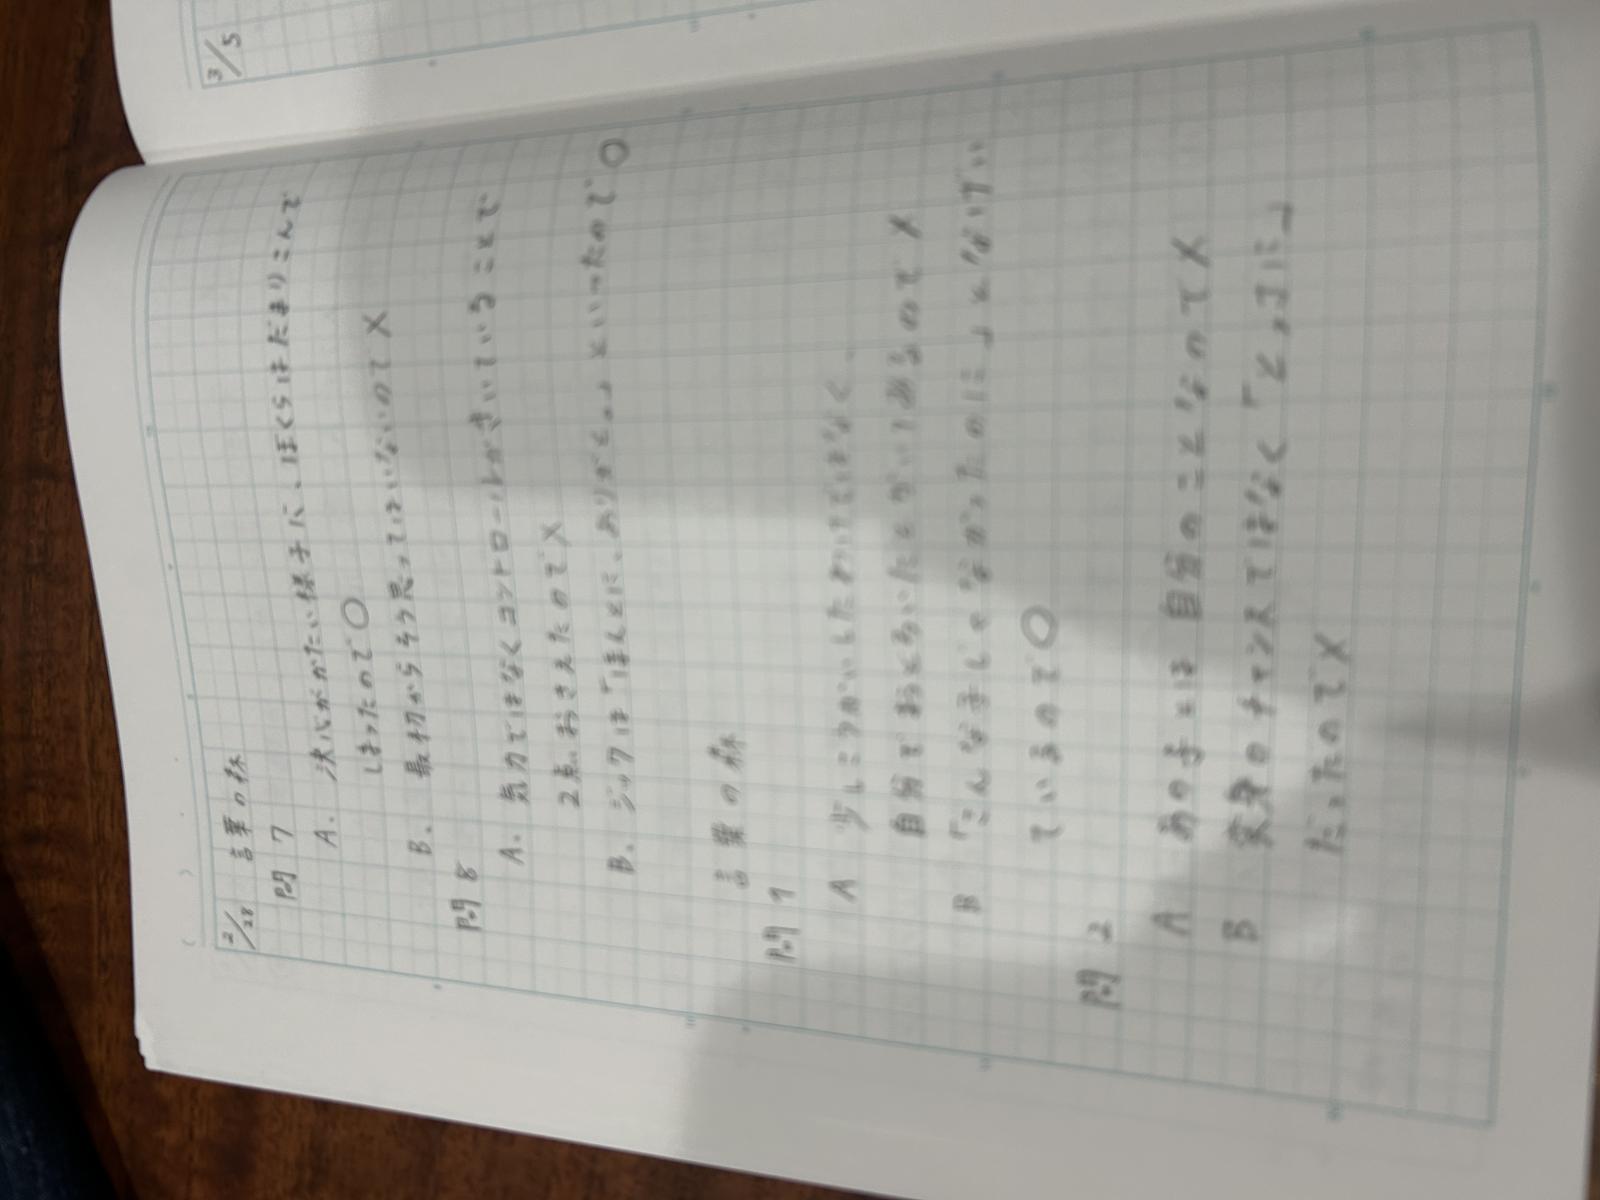 3/5
2/28 言葉の森
問7
A. 決パがかたい様子に、ぼくらはだまりこんで
しまったので○
B. 最初からそう思ってはいないので×
問8
A. 気力ではなくコントロールがきいていることで
2点におさえたので×
B. ジックは「ほんとに、ありがと。」といったので○
言葉の森
問1
A 少しこうかいしたわけではなく、
自分でおどろいたとかいてあるので×
B 「こんな子じゃなかったのに」となげい
ているので○
問2
A あの子とは自分のことなので×
B 変身のチャンスではなく「とっさに」
だったので×